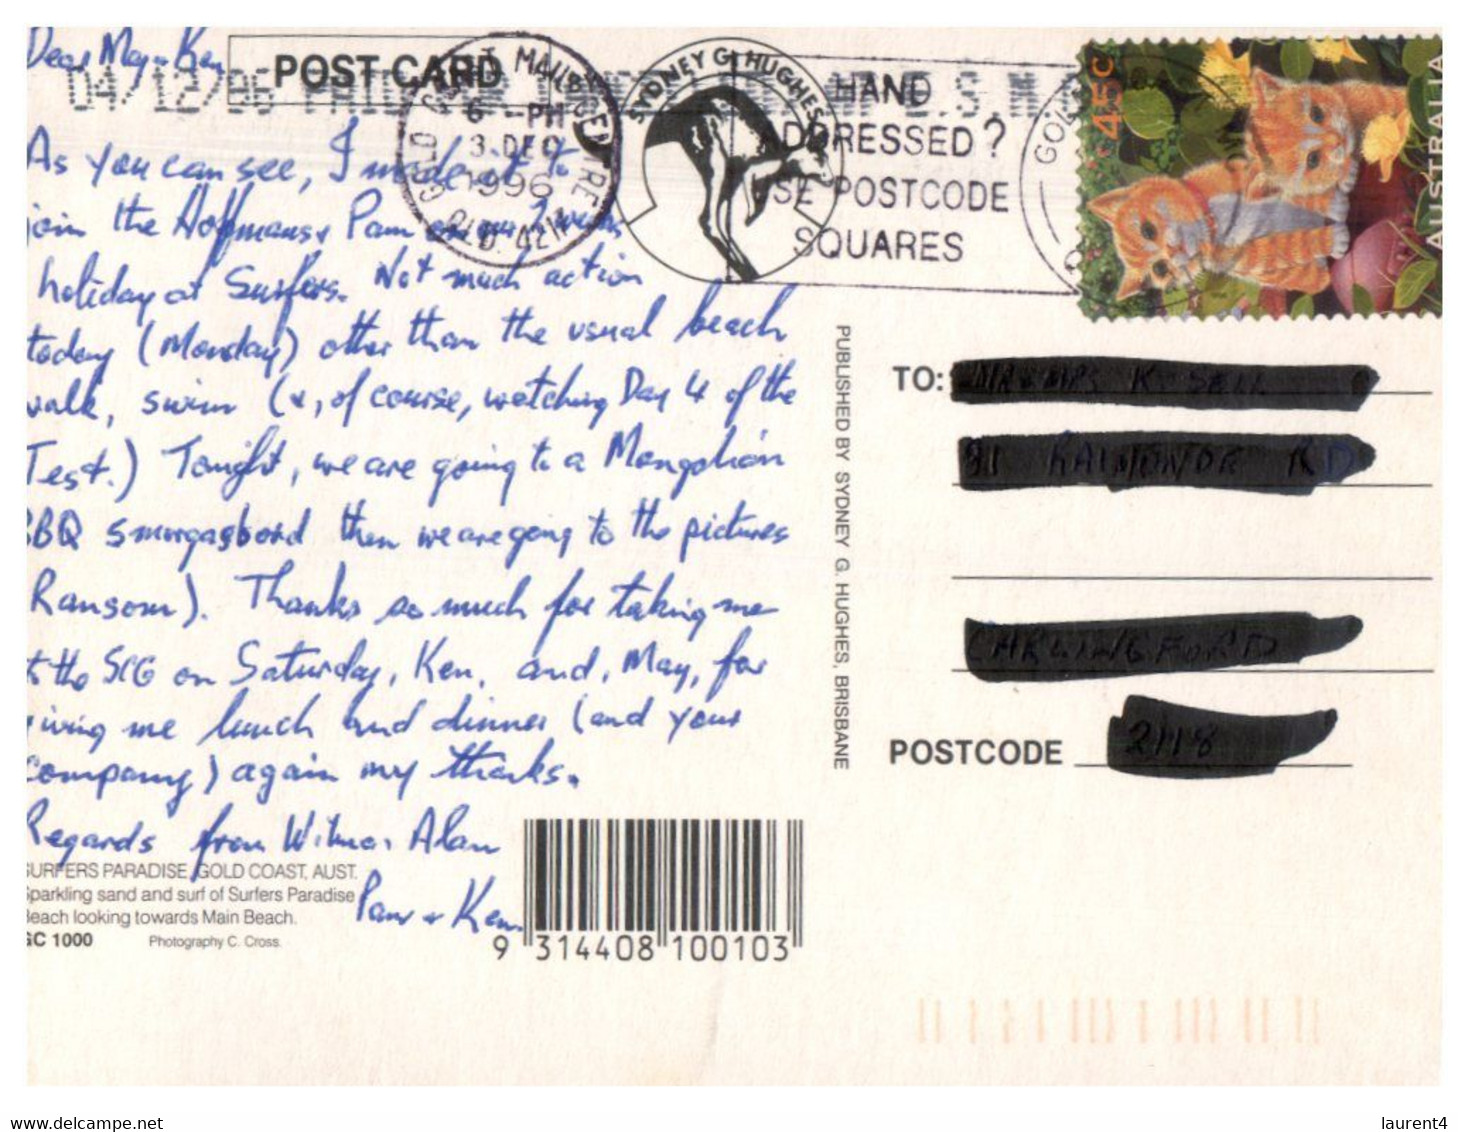 Dear May & Ken,
POST CARD
As you can see, I made it to
join the Hoffmans & Pam on our 2 weeks
holiday at Surfers. Not much action
today (Monday) other than the usual beach
walk, swim (&, of course, watching Day 4 of the
Test.) Tonight, we are going to a Mongolian
BBQ smorgasbord then we are going to the pictures
Ransom). Thanks so much for taking me
the SCG on Saturday, Ken, and, May, for
giving me lunch and dinner (and your
company) again my thanks.
Regards from Wilma, Alan
Pam & Ken
SURFERS PARADISE, GOLD COAST, AUST.
Sparkling sand and surf of Surfers Paradise
Beach looking towards Main Beach.
GC 1000 Photography C. Cross.
9 314408 100103
04/12/96
GOLD COAST MAIL CENTRE
6 -PM
3 DEC
1996
QLD. 4214
SYDNEY G. HUGHES
HAND
ADDRESSED?
USE POSTCODE
SQUARES
45c
AUSTRALIA
PUBLISHED BY SYDNEY G. HUGHES, BRISBANE
TO:
POSTCODE
www.delcampe.net
laurent4